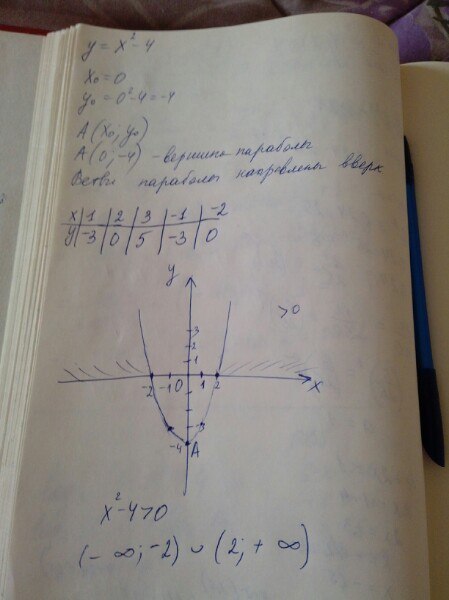 y = x² - 4
x₀ = 0
y₀ = 0² - 4 = -4
A (x₀; y₀)
A (0; -4) - вершина параболы
Ветви параболы направлены вверх
x | 1 | 2 | 3 | -1 | -2
y | -3 | 0 | 5 | -3 | 0
y
>0
3
2
1
-2 -1 0 1 2 x
-3
-4 A
x² - 4 > 0
(- ∞; -2) ∪ (2; + ∞)